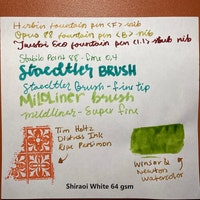 Herbin fountain pen <F> nib
Opus 88 fountain pen <B> nib
Twsbi Eco fountain pen (1.1) stub nib
Stabilo Point 88 - fine 0,4
Staedtler BRUSH
Staedtler Brush - fine tip
Mildliner brush
mildliner - super fine
Tim Holtz
Distress Ink
Ripe Persimmon
Winsor &
Newton
Watercolor
Shiraoi White 64 gsm